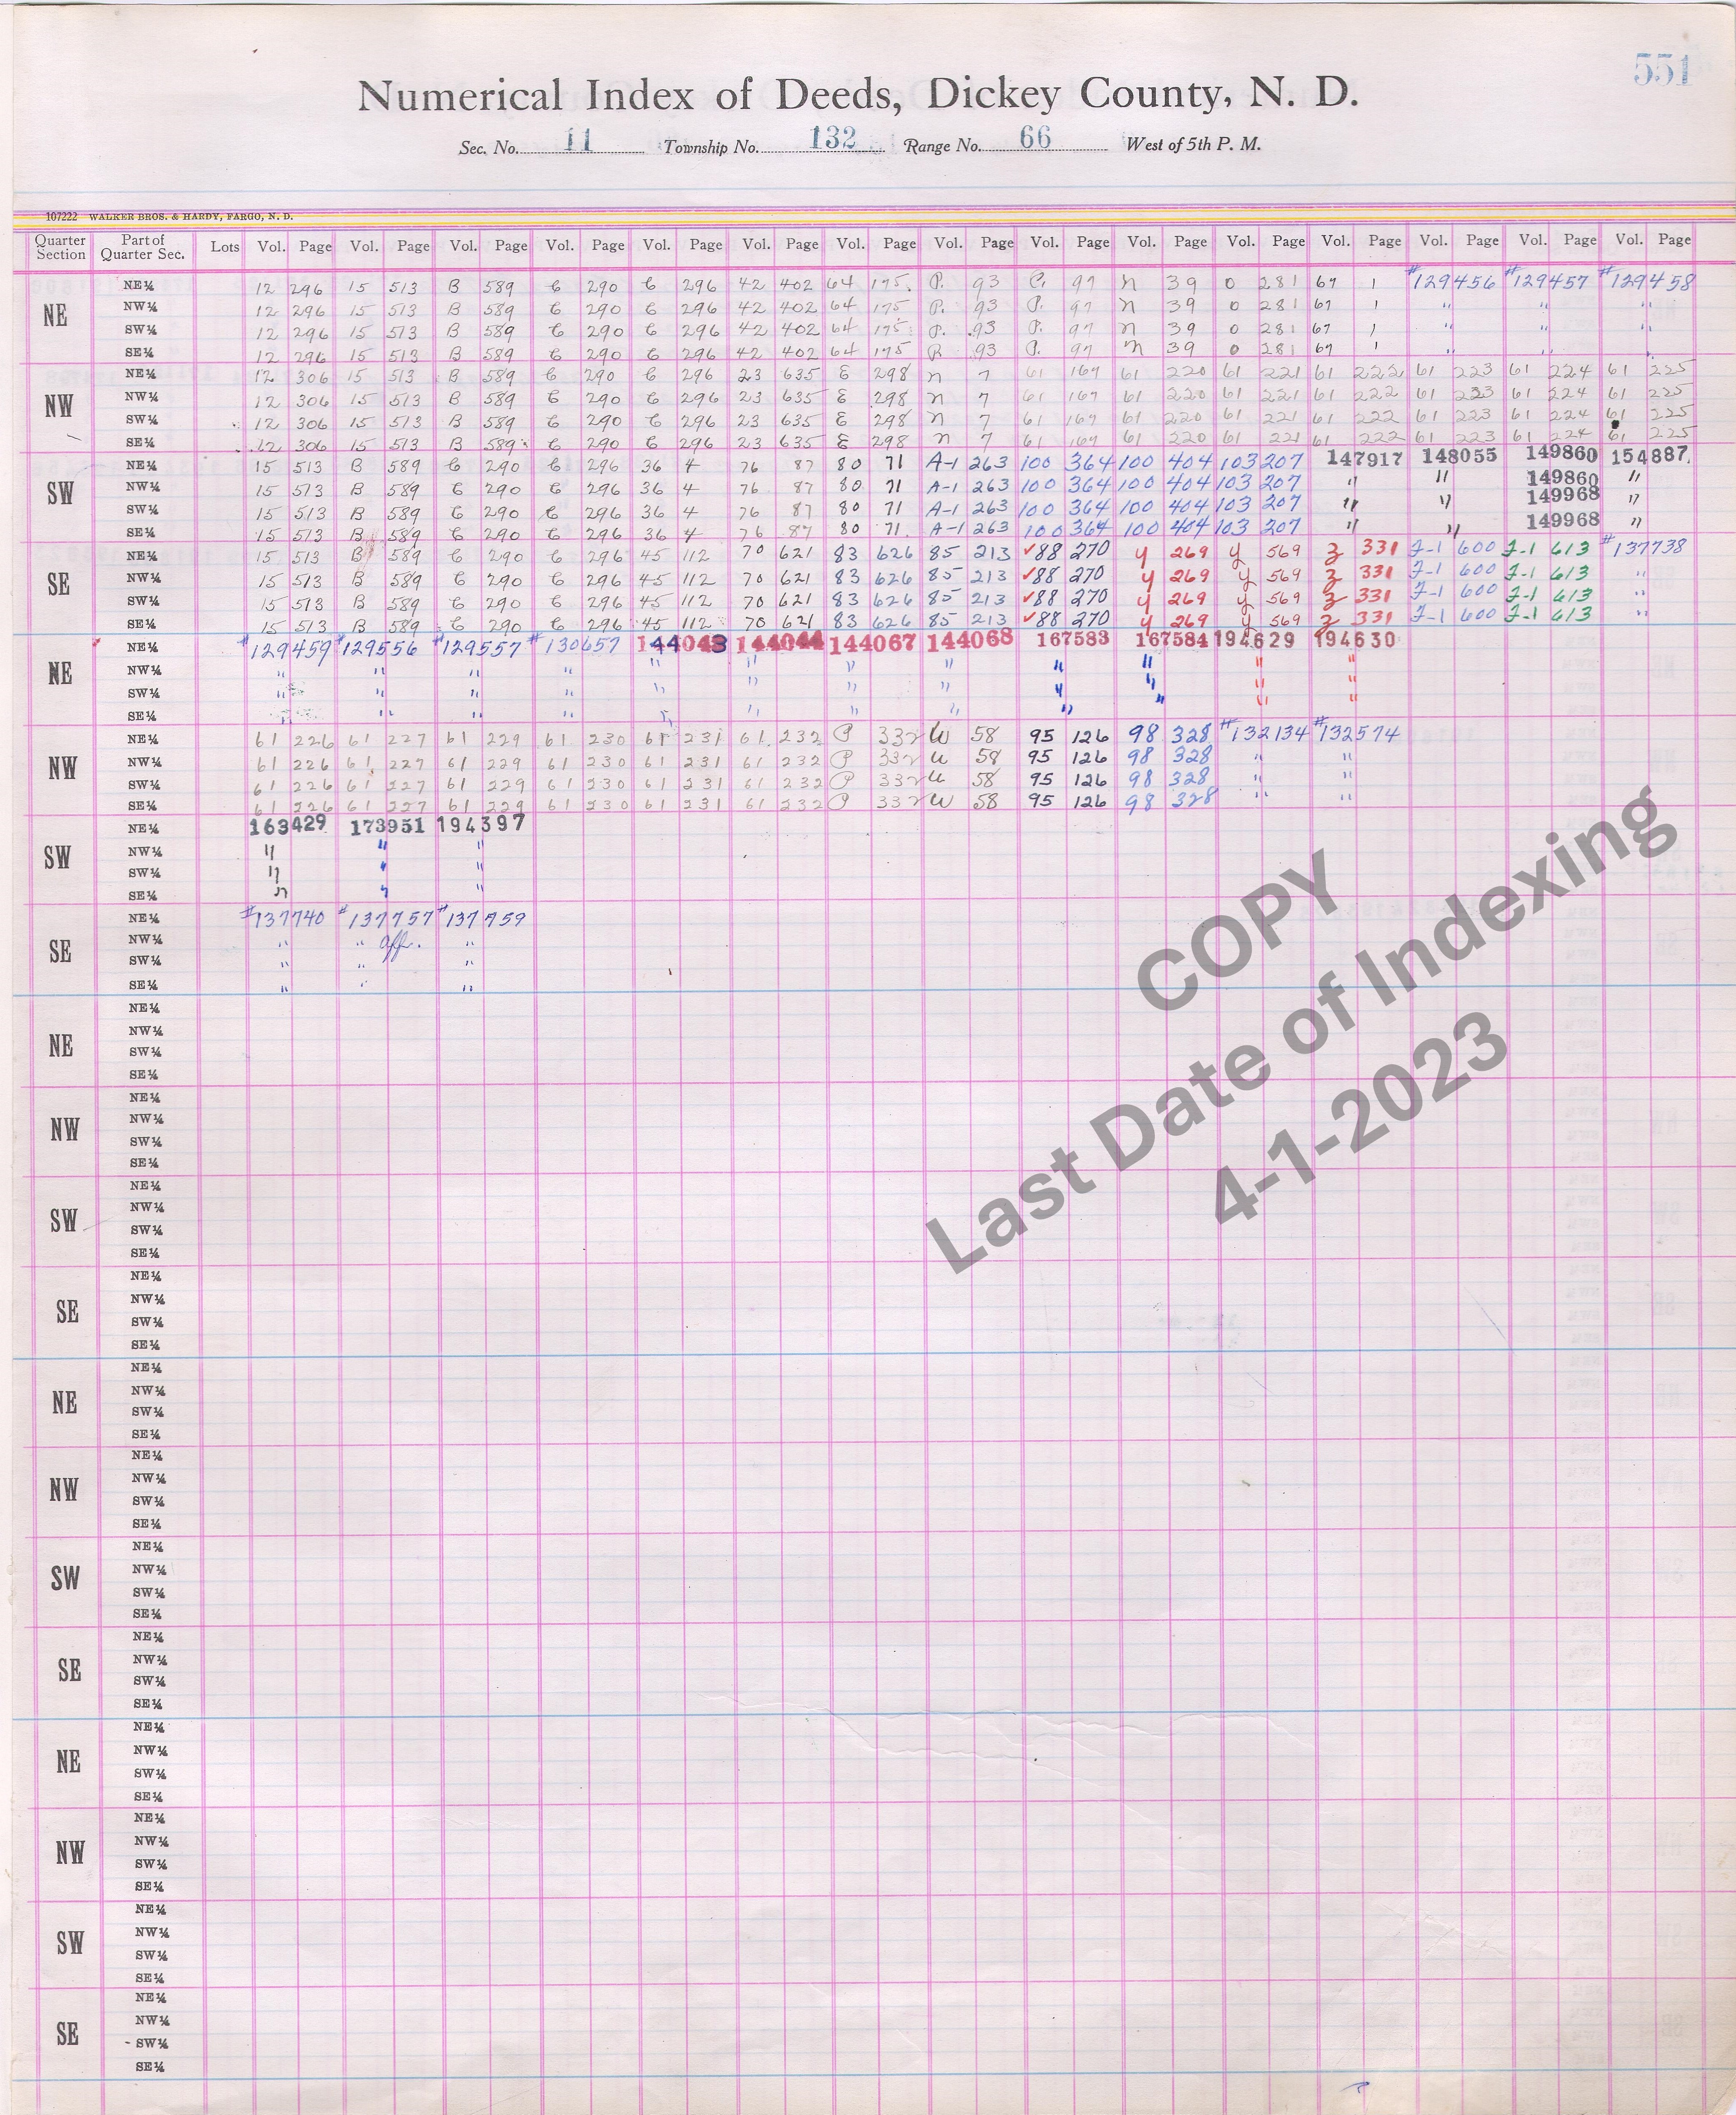 551
Numerical Index of Deeds, Dickey County, N. D.
Sec. No. 11 Township No. 132 Range No. 66 West of 5th P. M.
107222 WALKER BROS. & HARDY, FARGO, N. D.
Quarter Section Part of Quarter Sec. Lots Vol. Page Vol. Page Vol. Page Vol. Page Vol. Page Vol. Page Vol. Page Vol. Page Vol. Page Vol. Page Vol. Page Vol. Page Vol. Page Vol. Page Vol. Page
NE NE¼ 12 296 15 513 B 589 C 290 C 296 42 402 64 175 P. 93 P. 97 N 39 O 281 67 1 #129456 #129457 #129458
NW¼ 12 296 15 513 B 589 C 290 C 296 42 402 64 175 P. 93 P. 97 N 39 O 281 67 1 " " "
SW¼ 12 296 15 513 B 589 C 290 C 296 42 402 64 175 P. 93 P. 97 N 39 O 281 67 1 " " "
SE¼ 12 296 15 513 B 589 C 290 C 296 42 402 64 175 P. 93 P. 97 N 39 O 281 67 1 " " "
NW NE¼ 12 306 15 513 B 589 C 290 C 296 23 635 E 298 N 7 61 167 61 220 61 221 61 222 61 223 61 224 61 225
NW¼ 12 306 15 513 B 589 C 290 C 296 23 635 E 298 N 7 61 167 61 220 61 221 61 222 61 223 61 224 61 225
SW¼ 12 306 15 513 B 589 C 290 C 296 23 635 E 298 N 7 61 167 61 220 61 221 61 222 61 223 61 224 61 225
SE¼ 12 306 15 513 B 589 C 290 C 296 23 635 E 298 N 7 61 167 61 220 61 221 61 222 61 223 61 224 61 225
SW NE¼ 15 513 B 589 C 290 C 296 36 4 76 87 80 71 A-1 263 100 364 100 404 103 207 147917 148055 149860 154887
NW¼ 15 513 B 589 C 290 C 296 36 4 76 87 80 71 A-1 263 100 364 100 404 103 207 " " 149860 "
SW¼ 15 513 B 589 C 290 C 296 36 4 76 87 80 71 A-1 263 100 364 100 404 103 207 " " 149968 "
SE¼ 15 513 B 589 C 290 C 296 36 4 76 87 80 71 A-1 263 100 364 100 404 103 207 " " 149968 "
SE NE¼ 15 513 B 589 C 290 C 296 45 112 70 621 83 626 85 213 ✓88 270 Y 269 Y 569 Z 331 F-1 600 F-1 613 #137738
NW¼ 15 513 B 589 C 290 C 296 45 112 70 621 83 626 85 213 ✓88 270 Y 269 Y 569 Z 331 F-1 600 F-1 613 "
SW¼ 15 513 B 589 C 290 C 296 45 112 70 621 83 626 85 213 ✓88 270 Y 269 Y 569 Z 331 F-1 600 F-1 613 "
SE¼ 15 513 B 589 C 290 C 296 45 112 70 621 83 626 85 213 ✓88 270 Y 269 Y 569 Z 331 F-1 600 F-1 613 "
NE NE¼ #129459 #129556 #129557 #130657 144043 144044 144067 144068 167583 167584 194629 194630
NW¼ " " " " " " " " " " " "
SW¼ " " " " " " " " " " " "
SE¼ " " " " " " " " " " " "
NW NE¼ 61 226 61 227 61 229 61 230 61 231 61 232 P 332 W 58 95 126 98 328 #132134 #132574
NW¼ 61 226 61 227 61 229 61 230 61 231 61 232 P 332 W 58 95 126 98 328 " "
SW¼ 61 226 61 227 61 229 61 230 61 231 61 232 P 332 W 58 95 126 98 328 " "
SE¼ 61 226 61 227 61 229 61 230 61 231 61 232 P 332 W 58 95 126 98 328 " "
SW NE¼ 163429 173951 194397
NW¼ " " "
SW¼ " " "
SE¼ " " "
SE NE¼ #137740 #137757 #137759
NW¼ " " aff. "
SW¼ " " "
SE¼ " " "
NE NE¼
NW¼
SW¼
SE¼
NW NE¼
NW¼
SW¼
SE¼
SW NE¼
NW¼
SW¼
SE¼
SE NE¼
NW¼
SW¼
SE¼
NE NE¼
NW¼
SW¼
SE¼
NW NE¼
NW¼
SW¼
SE¼
SW NE¼
NW¼
SW¼
SE¼
SE NE¼
NW¼
SW¼
SE¼
NE NE¼
NW¼
SW¼
SE¼
NW NE¼
NW¼
SW¼
SE¼
SW NE¼
NW¼
SW¼
SE¼
SE NE¼
NW¼
SW¼
SE¼
COPY
Last Date of Indexing
4-1-2023